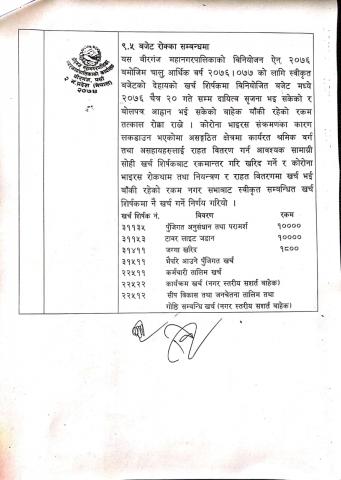 ९.५ बजेट रोक्का सम्बन्धमा
यस वीरगंज महानगरपालिकाको बिनियोजन ऐन, २०७६
बमोजिम चालु आर्थिक बर्ष २०७६।०७७ को लागि स्वीकृत
बजेटको देहायको खर्च शिर्षकमा बिनियोजित बजेट मध्ये
२०७६ चैत्र २० गते सम्म दायित्व सृजना भइ सकेको र
बोलपत्र आह्वान भई सकेको बाहेक बाँकी रहेको रकम
तत्काल रोक्का राख्ने । कोरोना भाइरस संक्रमणका कारण
लकडाउन भएकोमा असङ्गठित क्षेत्रमा कार्यरत श्रमिक वर्ग
तथा असहायहरुलाई राहत बितरण गर्न आवश्यक सामाग्री
सोही खर्च शिर्षकबाट रकमान्तर गरि खरिद गर्ने । र कोरोना
भाइरस रोकथाम तथा नियन्त्रण र राहत बितरणमा खर्च भई
बाँकी रहेको रकम नगर सभाबाट स्वीकृत सम्बन्धित खर्च
शिर्षकमा नै खर्च गर्ने निर्णय गरियो ।
खर्च शिर्षक नं. बिवरण रकम
३११३५ पुँजिगत अनुसंधान तथा परामर्श १००००
३११५३ टावर लाइट जडान १००००
३१४११ जग्गा खरिद १८००
३१५११ भैपरि आउने पुँजिगत खर्च
२२५११ कर्मचारी तालिम खर्च
२२५२२ कार्यक्रम खर्च (नगर स्तरीय सशर्त बाहेक)
२२५१२ सीप विकास तथा जनचेतना तालिम तथा
गोष्ठि सम्बन्धि खर्च (नगर स्तरीय सशर्त बाहेक)
२०७४